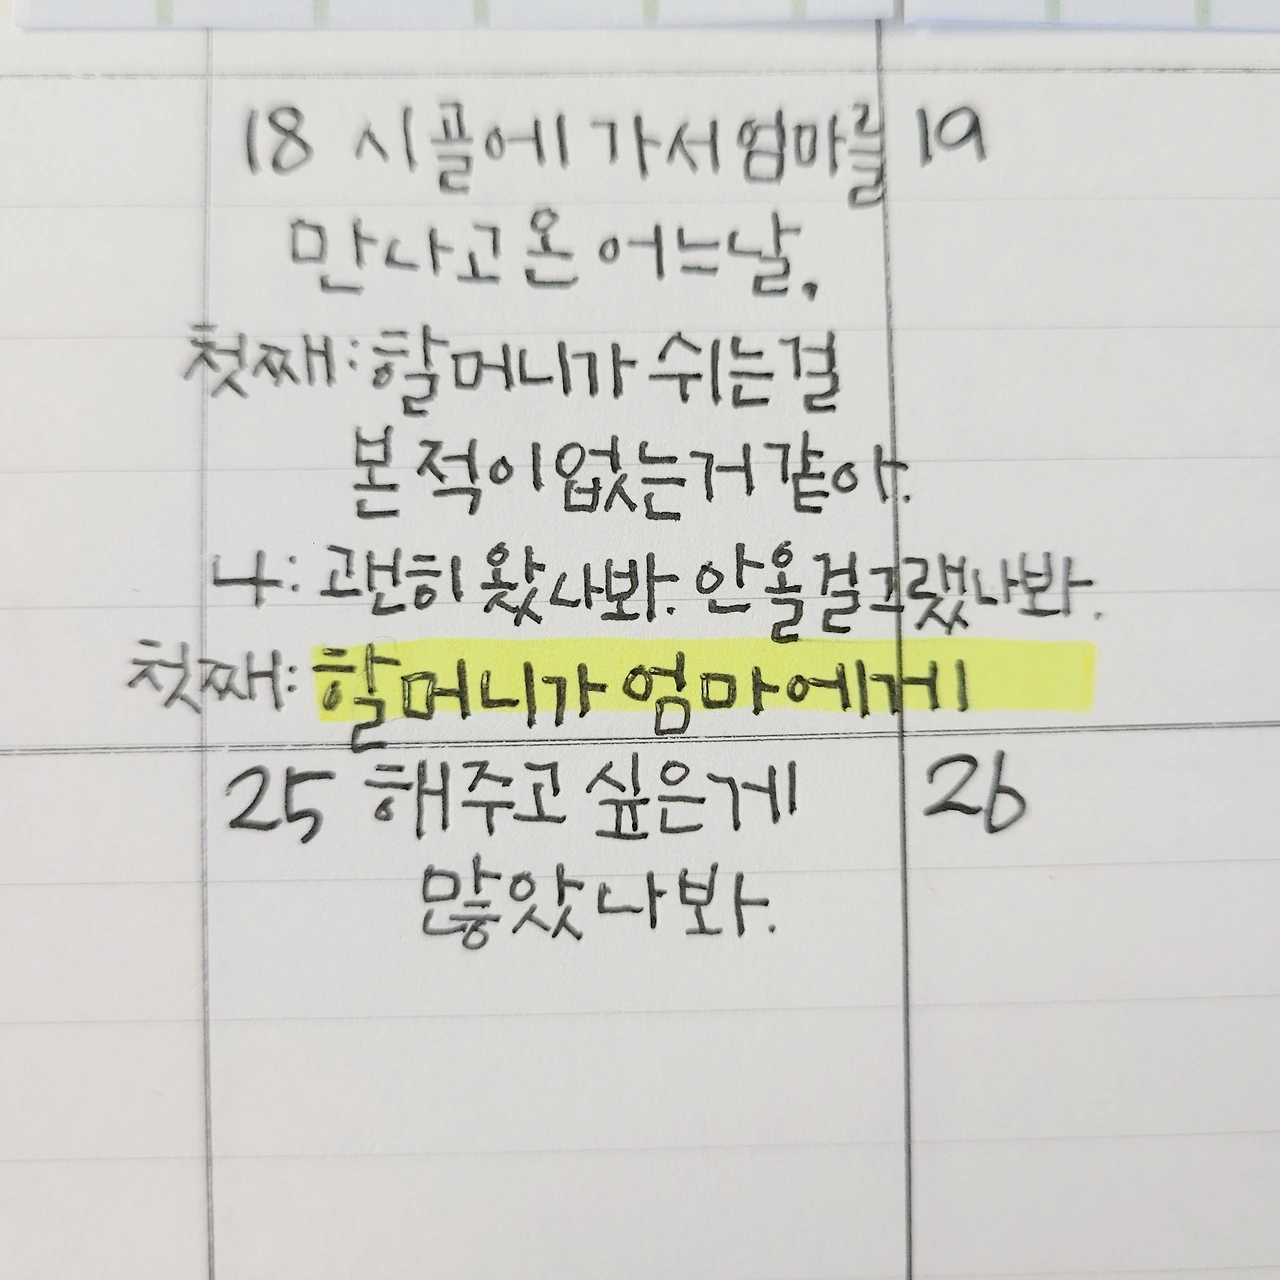 18 시골에 가서 엄마를 19
만나고 온 어느날.
첫째: 할머니가 쉬는걸
본 적이 없는거 같아.
나: 괜히 왔나봐. 안올걸그랬나봐.
첫째: 할머니가 엄마에게
25 해주고 싶은게 26
많았나봐.